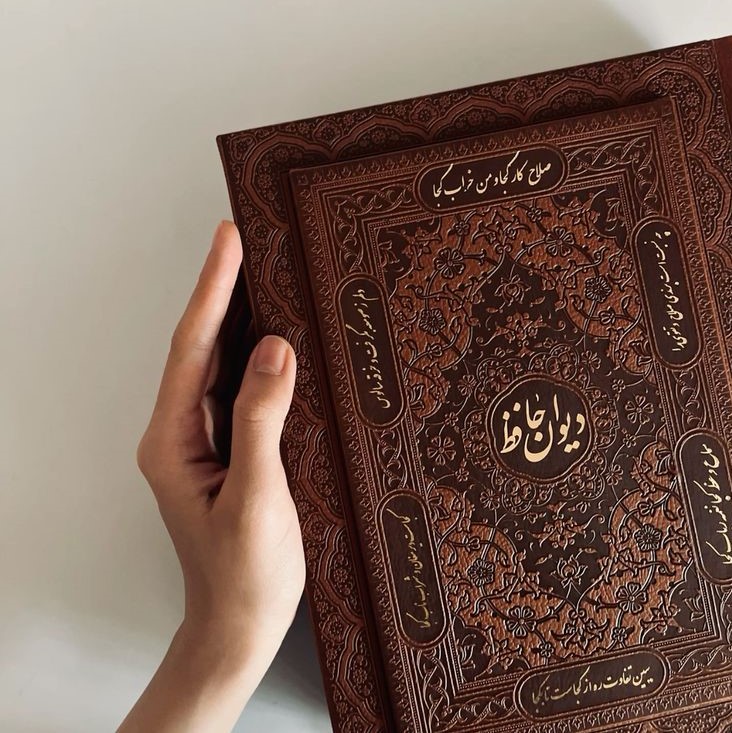 صلاح کار کجا و من خراب کجا
ببین تفاوت ره از کجاست تا بکجا
چه نسبت است برندی صلاح و تقوی را
سماع وعظ کجا نغمه رباب کجا
دلم ز صومعه بگرفت و خرقه سالوس
کجاست دیر مغان و شراب ناب کجا
دیوان حافظ